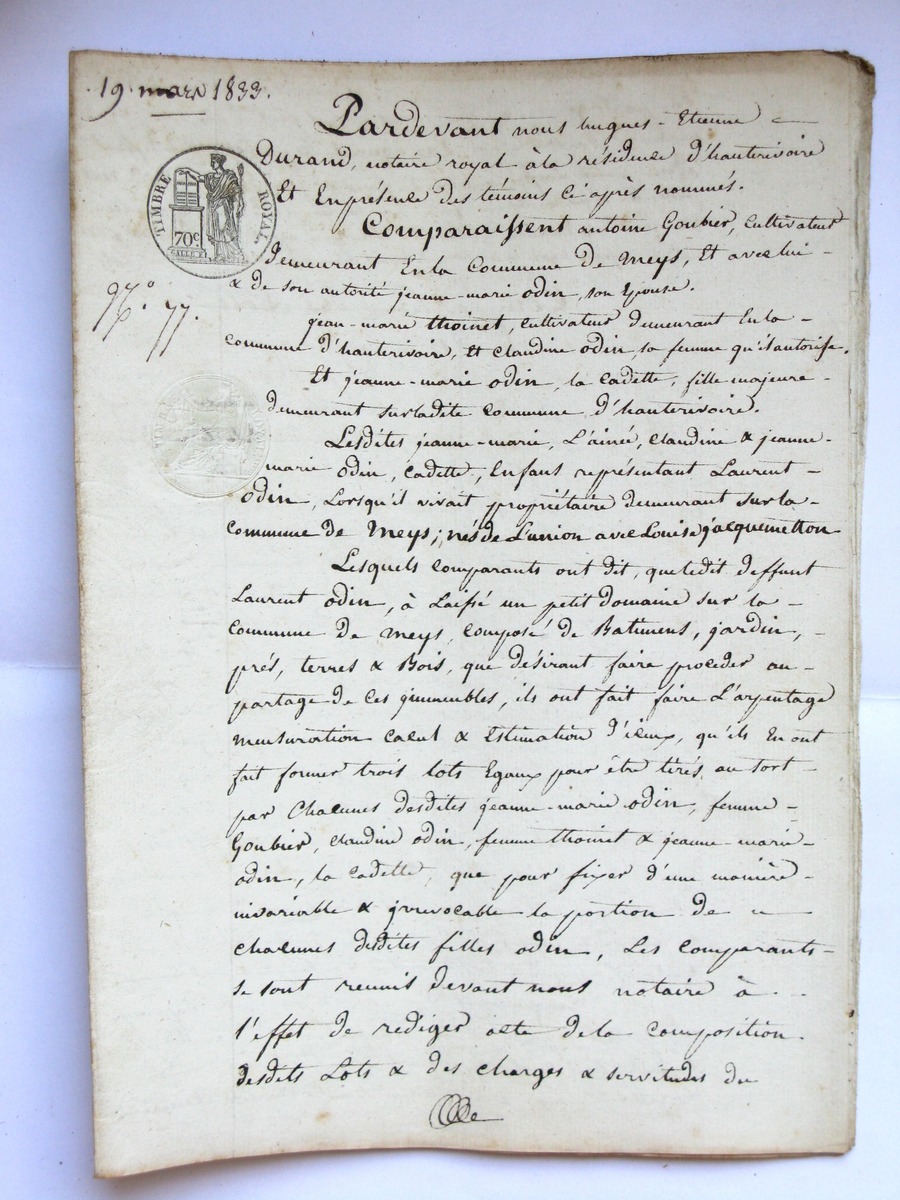 19 mars 1833.
Pardevant nous hugues-Etienne
Durand, notaire royal à la résidence d'hauterivoire
Et En présence des témoins ci après nommés.
Comparaissent antoine Goubier, cultivateur
demeurant En la Commune de Meys, Et avec lui
& de son autorité jeanne-marie odin, son Epouse.
TIMBRE ROYAL
70c
N.° 77.
jean-marie thoinet, cultivateur demeurant En la
commune d'hauterivoire, Et claudine odin, sa femme qu'il autorise.
Et jeanne-marie odin, la cadette, fille majeure
demeurant sur ladite commune d'hauterivoire.
Lesdites jeanne-marie, L'ainée, claudine & jeanne-
marie odin, cadette, Enfans représentant Laurent
odin, Lorsqu'il vivait propriétaire demeurant sur la
commune de Meys; nés de L'union avec Louise jacquemetton
Lesquels comparants ont dit, que ledit deffunt
Laurent odin, à Laissé un petit domaine sur la
commune de Meys, composé de Batimens, jardin,
prés, terres & Bois, que désirant faire proceder au
partage de ces immeubles, ils ont fait faire L'arpentage
mensuration calcul & Estimation d'iceux, qu'ils En ont
fait former trois lots Egaux pour être tirés au sort
par Chacunes desdites jeanne-marie odin, femme
Goubier, claudine odin, femme thoinet & jeanne-marie
odin, la cadette, que pour fixer d'une manière
invariable & irrevocable la portion de
chacunes desdites filles odin, Les comparants
se sont reunis devant nous notaire à
l'effet de rediger acte de la composition
desdits Lots & des charges & servitudes de